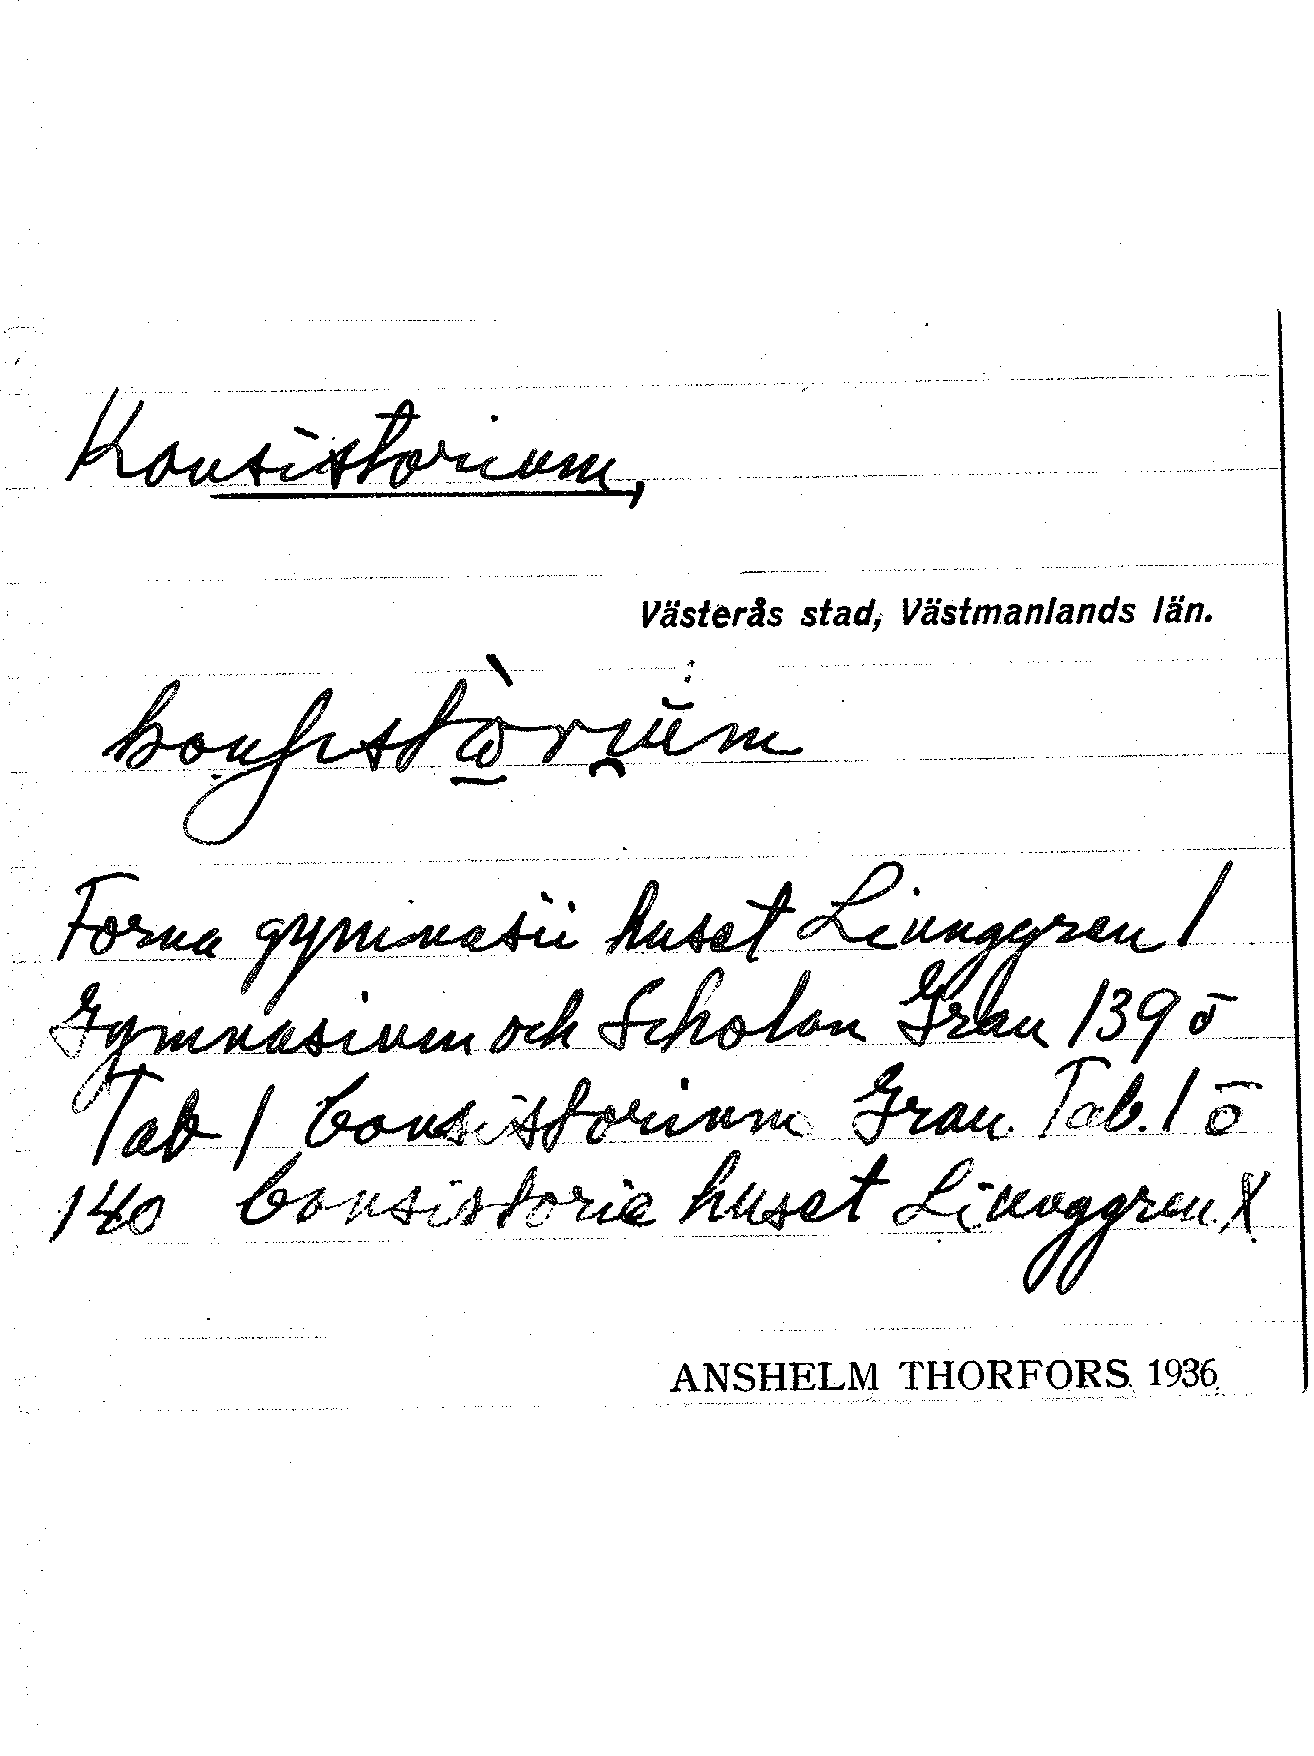 Konsistorium,
Västerås stad, Västmanlands län.
Forna gymnasii huset Linnggren 1
Gymnasium och Scholan Grau 139 ō
Tab 1 Consistorium Grau. Tab. 1 ō
140 Consistorie huset Linnggren X
ANSHELM THORFORS 1936